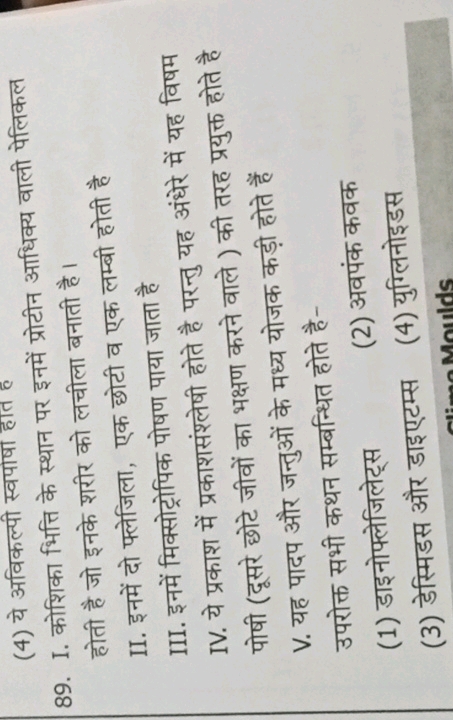 (4) ये अविकल्पी स्वपोषी होते हैं
89. I. कोशिका भित्ति के स्थान पर इनमें प्रोटीन आधिक्य वाली पेलिकल
होती है जो इनके शरीर को लचीला बनाती है।
II. इनमें दो फ्लेजिला, एक छोटी व एक लम्बी होती है
III. इनमें मिक्सोट्रोपिक पोषण पाया जाता है
IV. ये प्रकाश में प्रकाशसंश्लेषी होते है परन्तु यह अंधेरे में यह विषम
पोषी (दूसरे छोटे जीवों का भक्षण करने वाले ) की तरह प्रयुक्त होते है
V. यह पादप और जन्तुओं के मध्य योजक कड़ी होते हैं
उपरोक्त सभी कथन सम्बन्धित होते है-
(1) डाइनोफ्लेजिलेट्स (2) अवपंक कवक
(3) डेस्मिडस और डाइएटम्स (4) युग्लिनोइडस
Slime Moulds